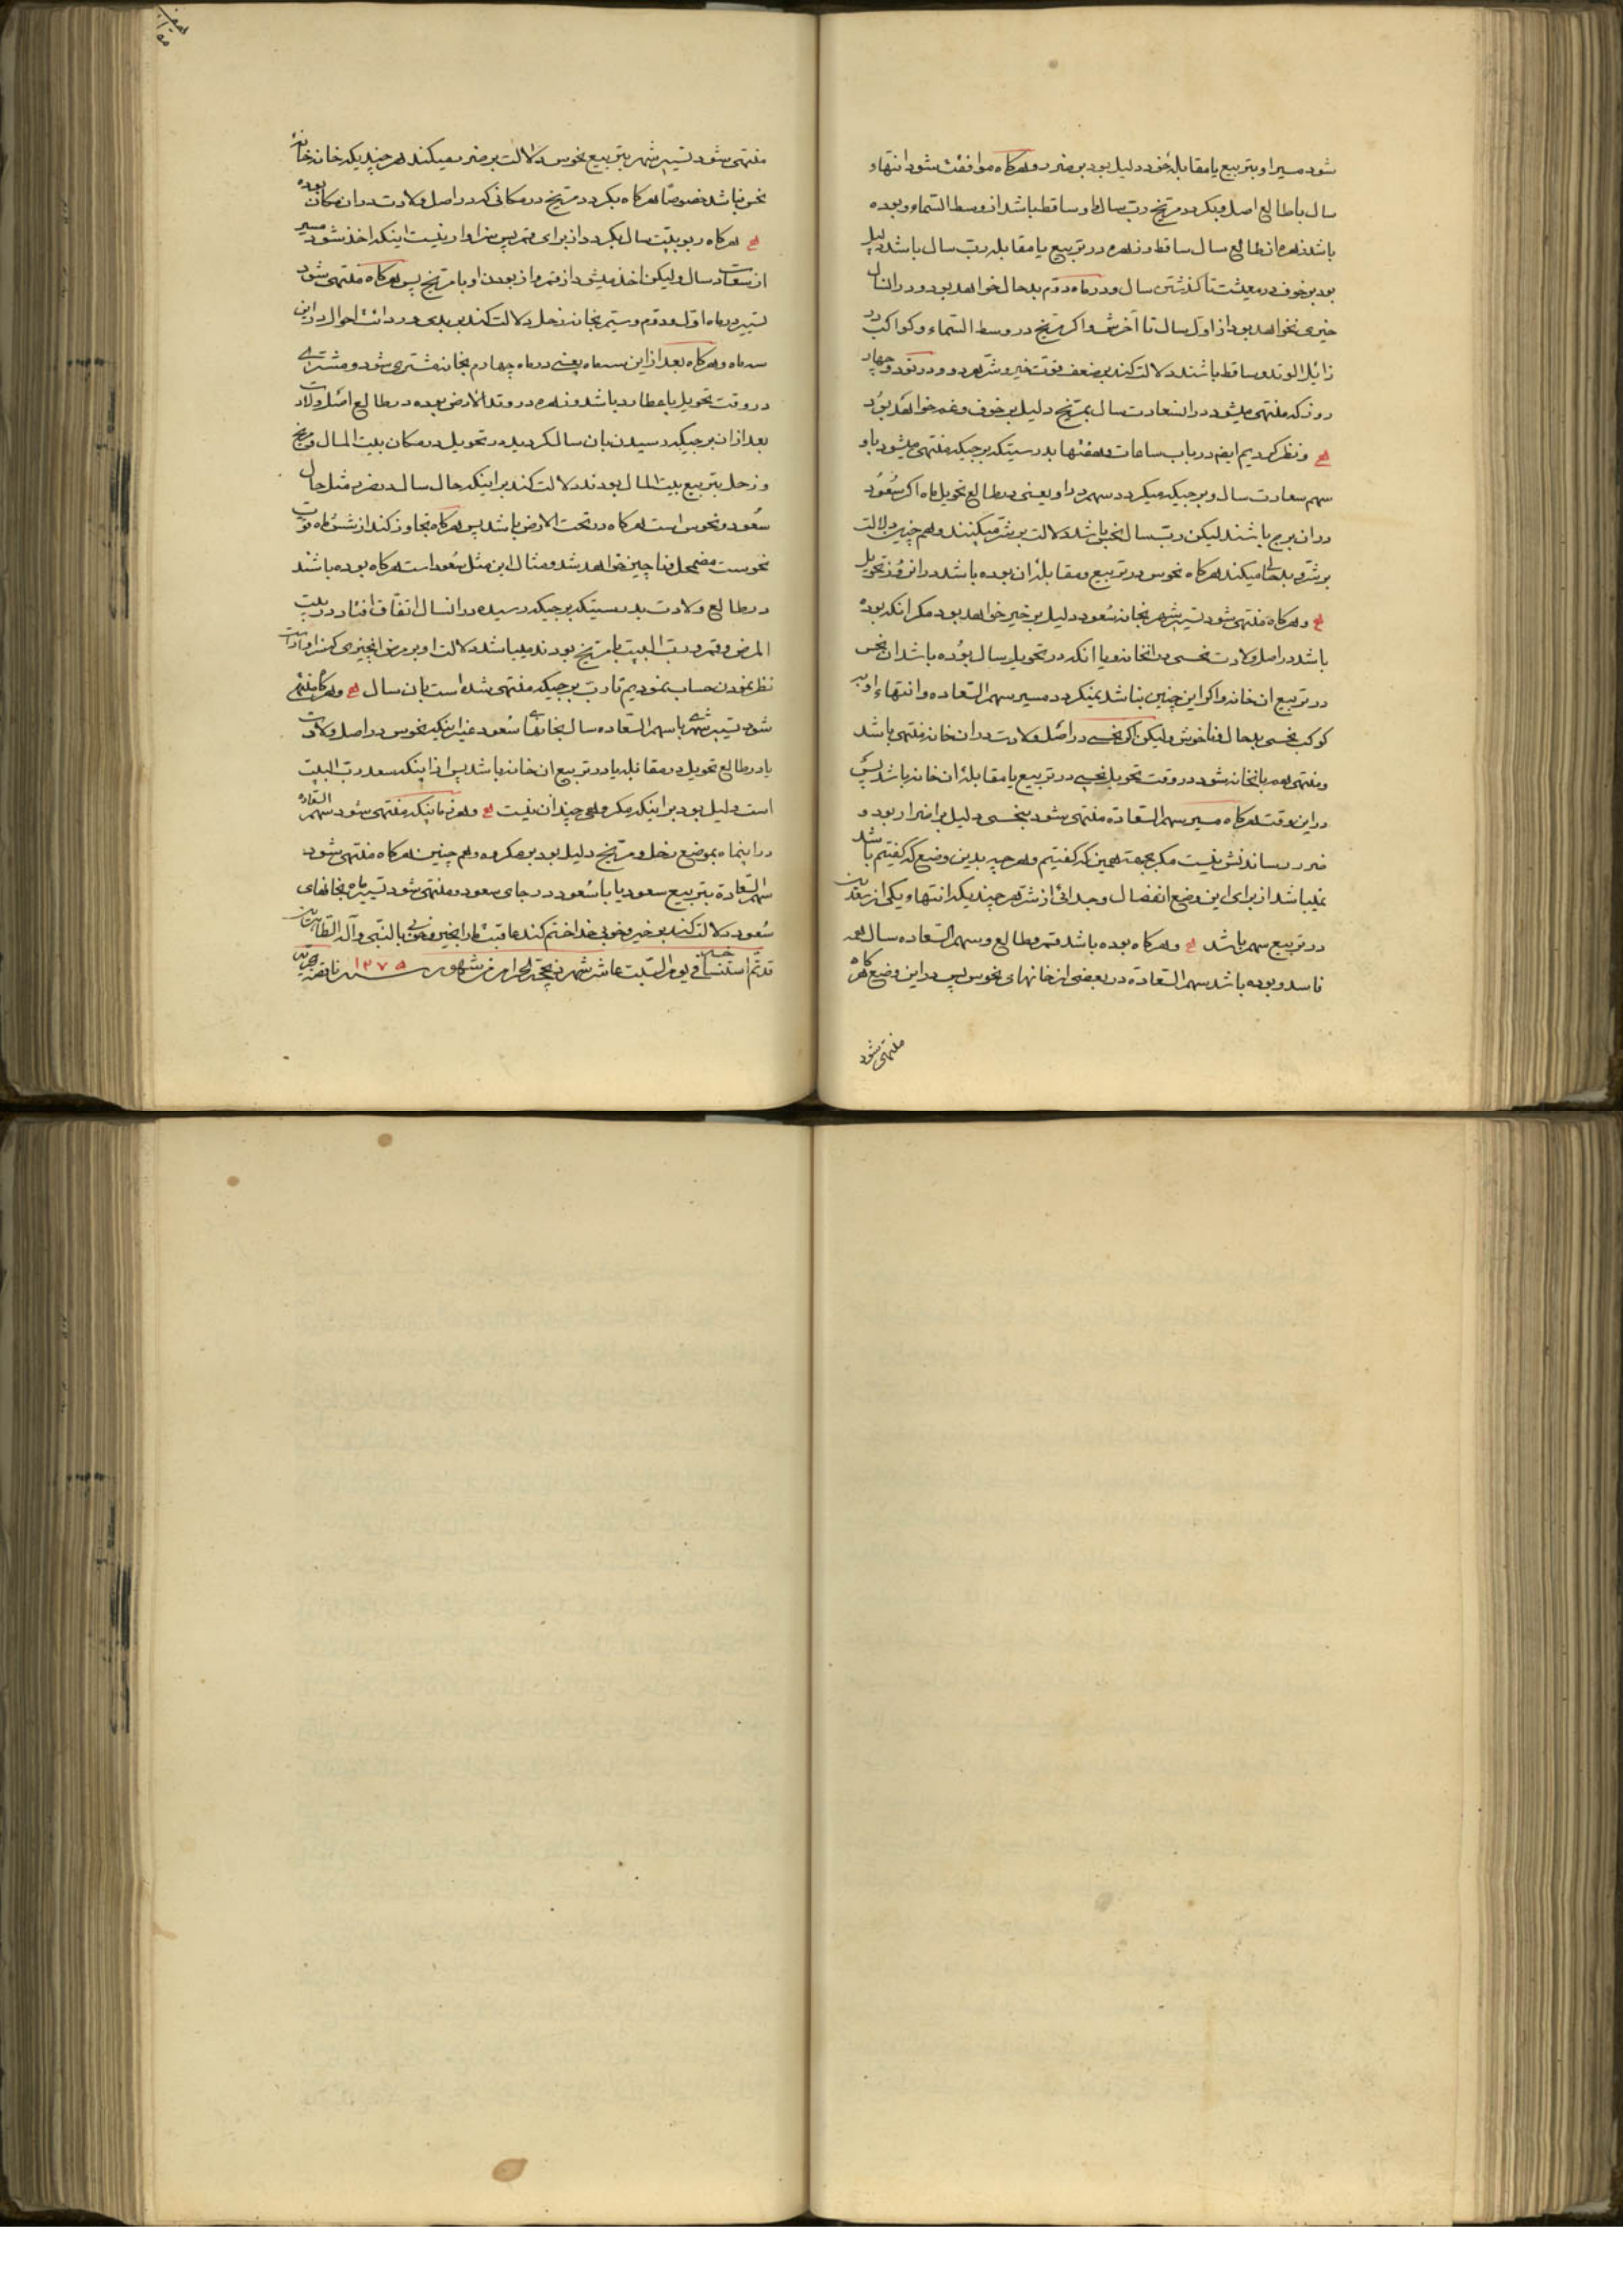 شود مسیر او بتربیع یا مقابلهٔ خود دلیل بود بر ضرر و هرکاه موافقت شود انتهاء
سال با طالع اصل و بکردد مریخ رب سال و او ساقط باشد از وسط السماء و بوده
باشد زهره از طالع سال ساقط و زهره در تربیع یا مقابله رب سال باشد دلیل
بود بر خوف در معیشت تا کذشتن سال و در ماه دوم بدحال خواهد بود و در انسال
خیری نخواهد بود از اول سال تا آخرش و اکر مریخ در وسط السماء و کواکب در
زائل الوتد و ساقط باشند دلالت کند بر ضعف قوت خیر و شر هر دو و در نود و چهار
روز که منتهی میشود در انسعادت سال بمریخ دلیل بر خوف و غم خواهد بود
و نظر کردیم ایضا در باب ساعات و هفتها بدرستیکه برجیکه منتهی میشود باو
سهم سعادت سال و برجیکه میکردد سهم در او یعنی در طالع تحویل ماه اکر سعود
در ان برج باشند لیکن رب سال نحس باشد دلالت بر شر میکنند و هم چنین دلالت
بر شر و بلا میکند هرکاه نحوس در تربیع و مقابلهٔ ان بوده باشد در انروز تحویل
و هرکاه منتهی شود تسییر شهر بخانه سعود دلیل بر خیر خواهد بود مکر انکه بوده
باشد در اصل ولادت نحسی در انخانه و یا انکه در تحویل سال بوده باشد ان نحس
در تربیع ان خانه و اکر این چنین نباشد بنیکردد مسیر سهم السعاده و انتهاء او به
کوکب نحسی بدحال و ناخوش و لیکن اکر نحسی در اصل ولادت در ان خانه منتهی باشد
و منتهی به بانخانه شود در وقت تحویل نحسی در تربیع یا مقابلهٔ ان خانه باشد پس
در این وقت هرکاه مسیر سهم السعاده منتهی شود بنحسی دلیل بر اضرار بود و
ضرر رساندنش نیست مکر بجهة همین که کفتیم و هر چه بدین وضع که کفتیم باشد
نمیباشد از برای این وضع انفصال و جدائی از شر هر چند یکه انتهاء یکی از سعدین
در تربیع سهم باشد و هرکاه بوده باشد قمر و طالع و سهم السعاده سال همه
فاسد و بوده باشد سهم السعاده در بعضی از خانهای نحوس پس در این وضع هرکاه
منتهی شود
منتهی شود تسییر شهر بتربیع نحوس دلالت بر ضرر میکند هر چند یکه خانه خانهٔ
نحس نباشد خصوصا هرکاه بکردد مریخ در مکانی که در اصل ولادت در ان مکان بوده
هرکاه ربوبیت سال بکردد از برای قمر پس سزاوار نیست اینکه اخذ شود مسیر
از سعادت سال و لیکن اخذ میشود از قمر و از بودن او با مریخ پس هرکاه منتهی شود
تسییر در ماه اول و دوم و سیم بخانه زحل دلالت کند بر بدی و ردائت احوال در این
سه ماه و هرکاه بعد از این سه ماه یعنی در ماه چهارم بخانه مشتری شود و مشتری
در وقت تحویل با عطارد باشد و زهره در وتد الارض بوده در طالع اصل ولادت
بعد از ان برجیکه رسیدن بان سال کردیده در تحویل در مکان بیت المال و مریخ
و زحل بتربیع بیت المال بودند دلالت کند بر اینکه حال سال در ضرر مثل حال
سعود و نحوس است هرکاه در تحت الارض باشد پس هرکاه تجاوز کند از شش ماه قوت
نحوست مضمحل و ناچیز خواهد شد و مثال این مثل سعود است هرکاه بوده باشند
در طالع ولادت بدرستیکه برجیکه رسیده در انسال اتفاق افتاد در بیت
المرض و قمر و رب البیت با مریخ بودند میباشد دلالت او بر مرض
نظر نمودن حساب نمودیم تا رب برجیکه منتهی شده است بان سال و هرکاه منتهی
شود تسییر شهر یا سهم السعاده سال بخانهای سعود غیر اینکه نحوس در اصل ولادت
یا در طالع تحویل در مقابله یا در تربیع ان خانه باشد پس از اینکه سعد رب البیت
است دلیل بود بر اینکه مکروهی چندان نیست و هر زمانیکه منتهی شود سهم السعاده
در اینماه بموضع زحل و مریخ دلیل بود بر مکروه و هم چنین هرکاه منتهی شود
سهم السعادة بتربیع سعود یا با سعود در جای سعود و منتهی شود تسییر ماه بخانهای
سعود دلالت کند بر خیر و خوبی خدا ختم کند عاقبت ما را بخیر و خوبی بالنبی و آله الطاهرین
قد تم استنساخه فی یوم السبت عاشر شهر ذیحجة الحرام من شهور سنه ۱۲۷۵